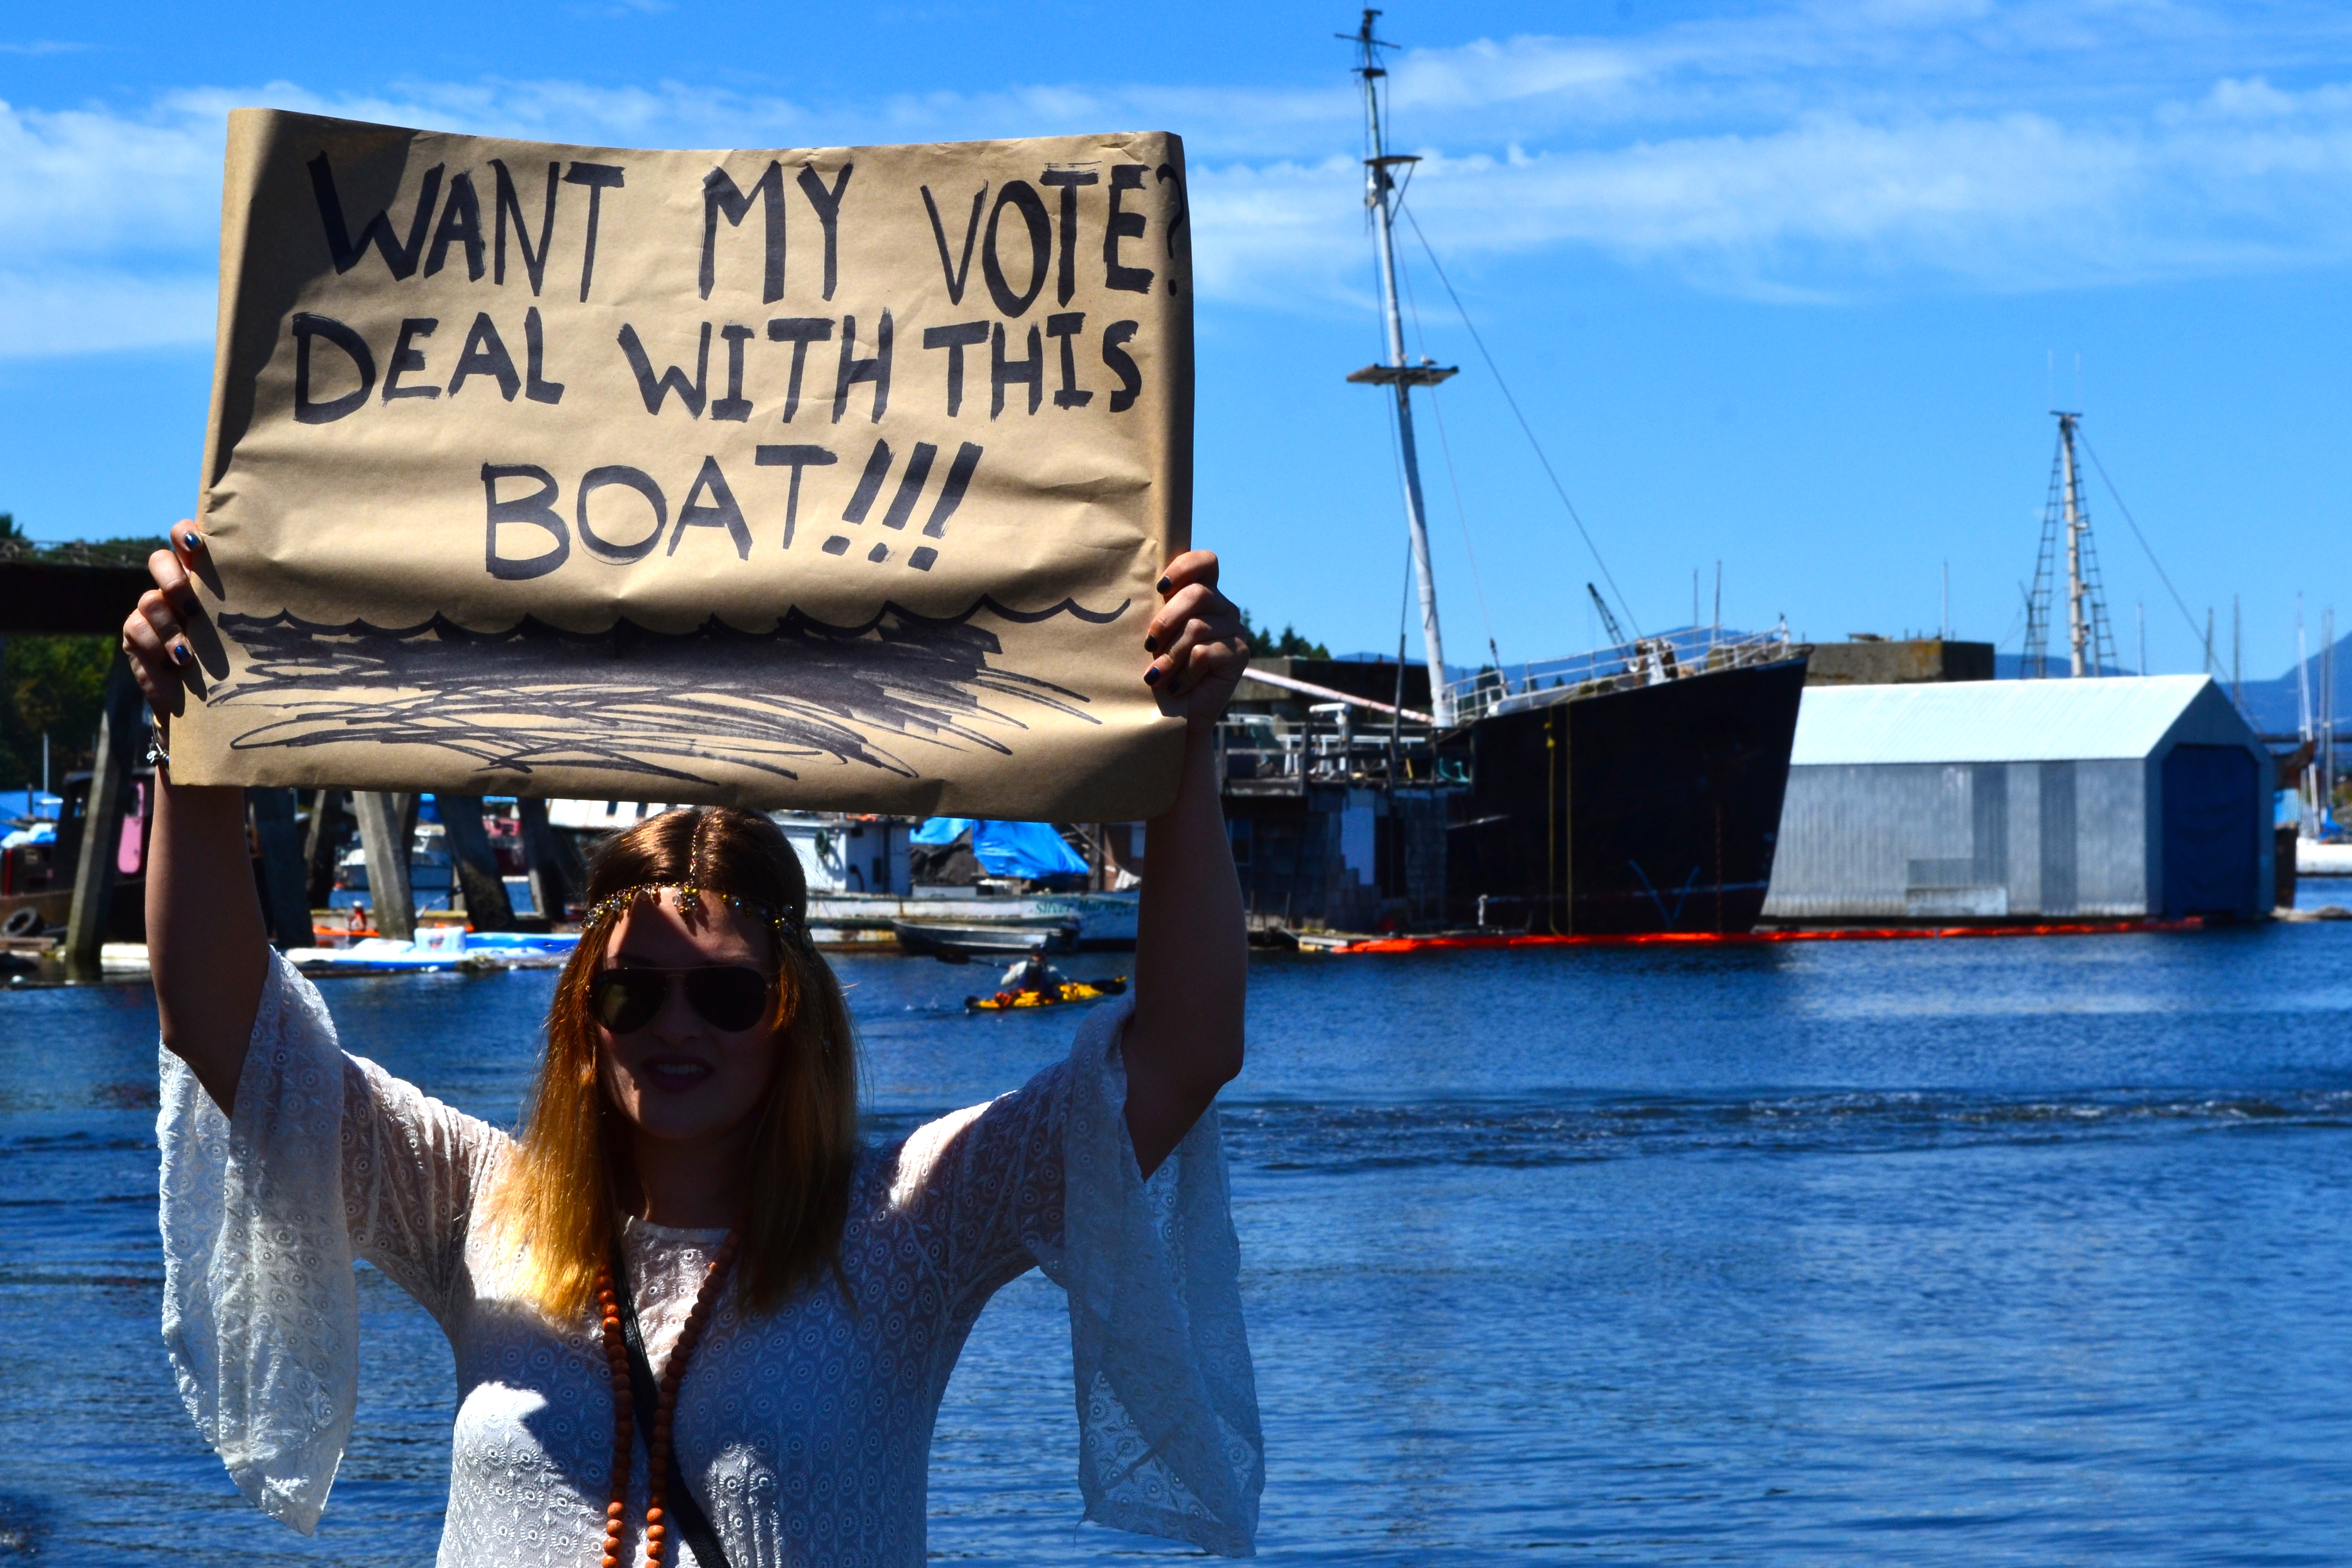 WANT MY VOTE?
DEAL WITH THIS
BOAT!!!
Silver